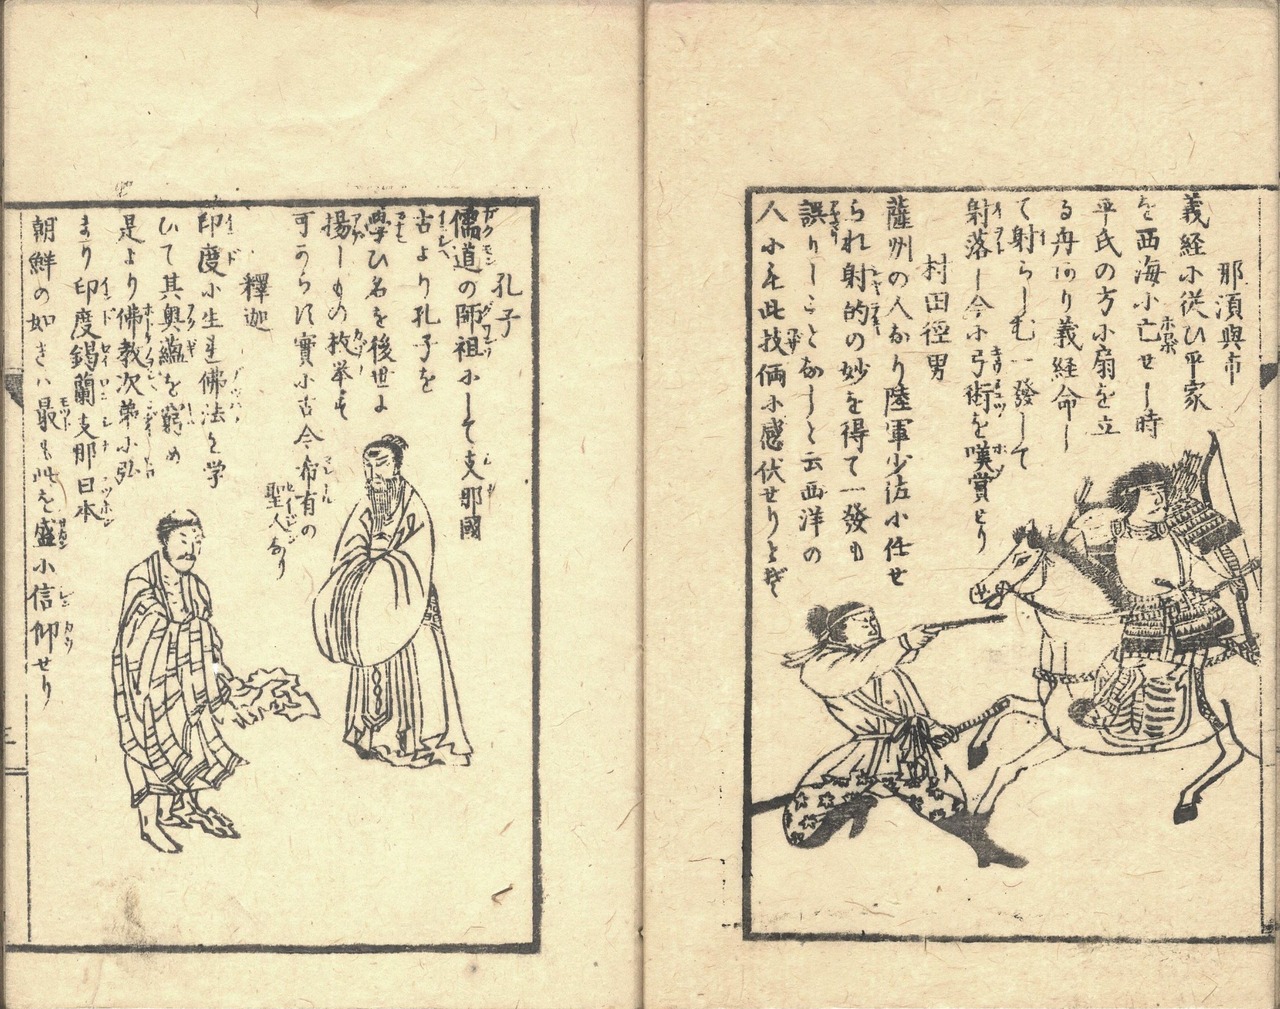 那須與市
義経小従ひ平家
を西海小亡せし時
平氏の方小扇を立
る舟あり義経命し
て射らしむ一發して
射落し今小弓術を嘆賞せり
村田徑男
薩州の人なり陸軍少佐小任せ
られ射的の妙を得て一發も
誤りしことなしと云西洋の
人小も此技倆小感伏せりとぞ
孔子
儒道の師祖小して支那國
古より孔子を
學ひ名を後世よ
揚しもの枚挙も
可らす實小古今希有の
聖人なり
釋迦
印度小生連佛法を学
ひて其奥蘊を窮め
是より佛教次第小弘
まり印度錫蘭支那日本
朝鮮の如きハ最も此を盛小信仰せり